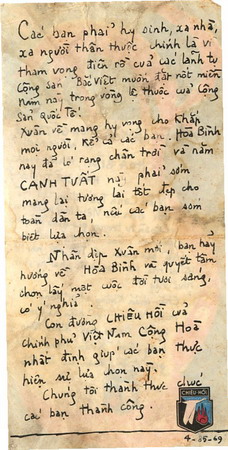 Các bạn phải hy sinh, xa nhà,
xa người thân thuộc chính là vì
tham vọng điên rồ của các lãnh tụ
Cộng sản Bắc Việt muốn đặt nốt miền
Nam này trong vòng lệ thuộc của Cộng
Sản Quốc Tế.
Xuân về mang hy vọng cho khắp
mọi người, kể cả các bạn. Hòa Bình
nay đã ló rạng chân trời và năm
CANH TUẤT này phải sớm
mang lại tương lai tốt đẹp cho
toàn dân ta, nếu các bạn sớm
biết lựa chọn.
Nhân dịp Xuân mới, bạn hãy
hướng về Hòa Bình và quyết tâm
chọn lấy một cuộc đời tươi sáng,
có ý nghĩa.
Con đường CHIÊU HỒI của
chính phủ Việt NAM Cộng Hoà
nhất định giúp các bạn thực
hiện sự lựa chọn này.
Chúng tôi thành thực chúc
các bạn thành công.
CHIÊU-HỒI
4-05-69